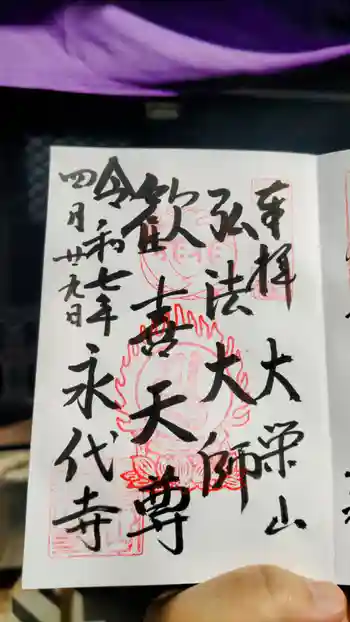 奉拝
大栄山
弘法大師
歓喜天尊
令和七年
四月廿九日
永代寺